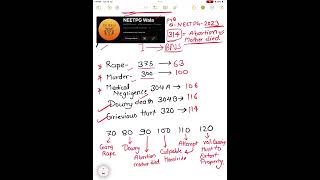 NEETPG Wala
Q-NEETPG-2023
314 → Abortion &
Mother died.
I → BNS
* Rape - 375 → 63
* Murder - 300 → 100
* Medical
Negligence 304A → 106
* Dowry death 304B → 116
* Grievious Hurt 320 → 114
70 80 90 100 110 120
Gang
Rape
Dowry
Abortion
mother died
Culpable
Homicide
Attempt
vol. Causing
Hurt to
Extort
Property